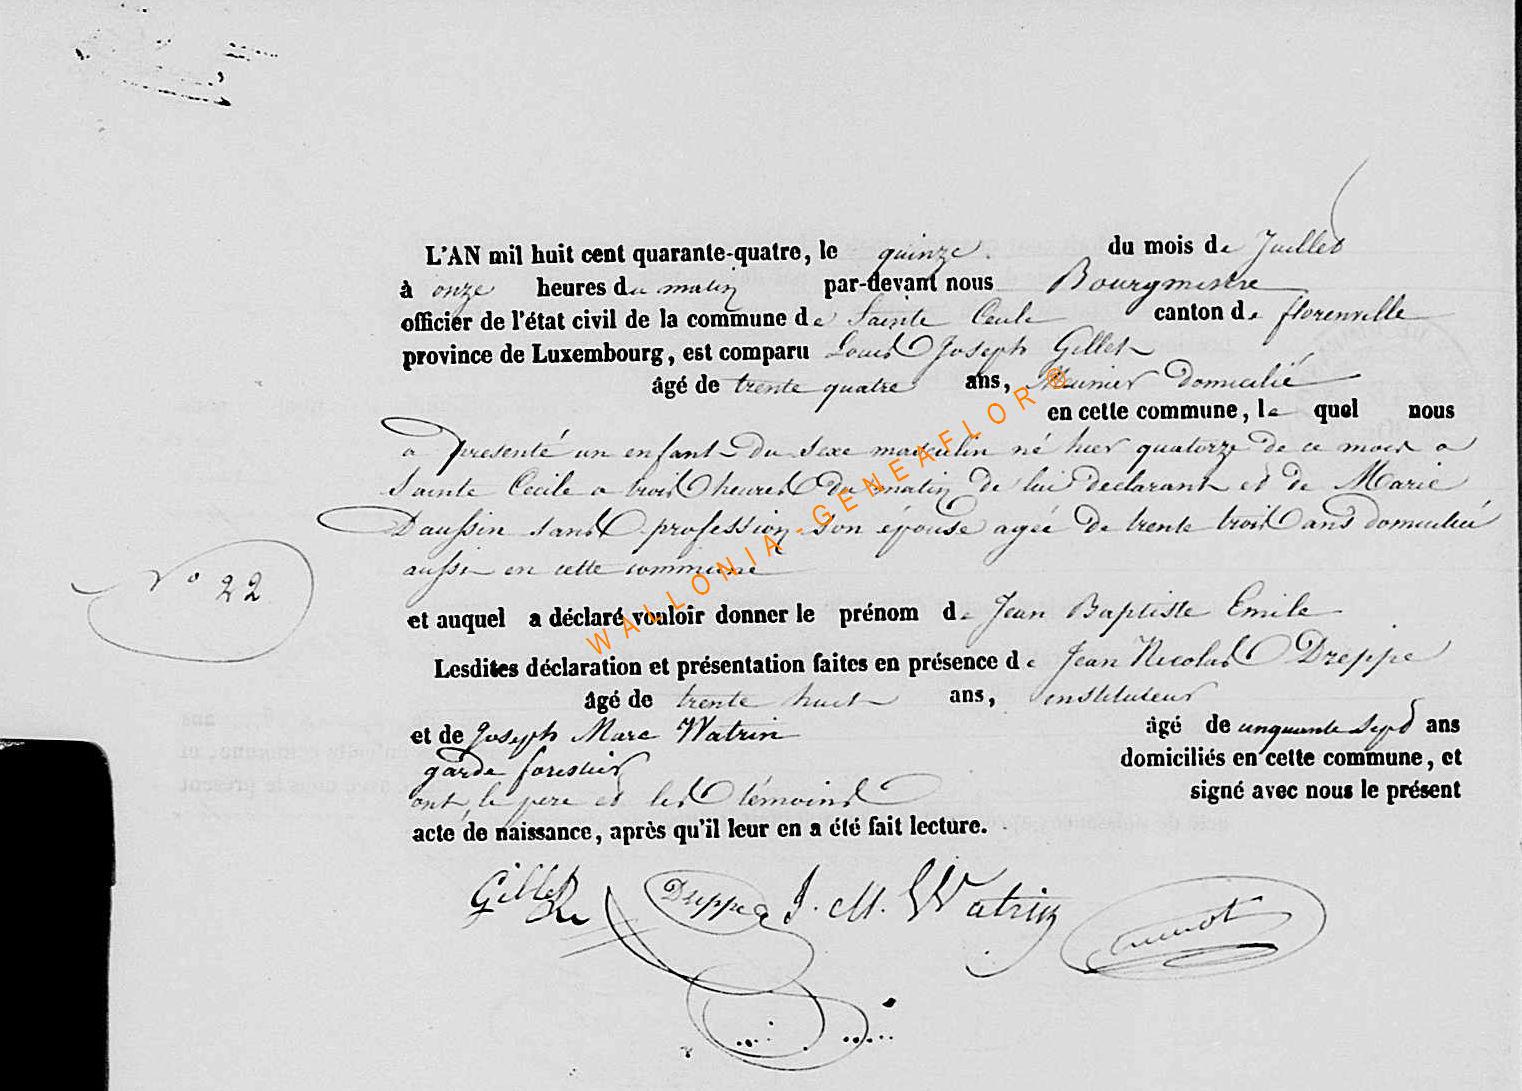 L'AN mil huit cent quarante-quatre, le quinze du mois de Juillet
à onze heures du matin par-devant nous Bourgmestre
officier de l'état civil de la commune de Sainte Cecile canton de florenville
province de Luxembourg, est comparu Louis Joseph Gillet
âgé de trente quatre ans, Meunier domicilié
en cette commune, le quel nous
a presenté un enfant du sexe masculin né hier quatorze de ce mois a
Sainte Cecile a trois heures du matin de lui declarant et de Marie
Daussin sans profession son épouse agée de trente trois ans domiciliée
aussi en cette commune
N° 22
et auquel a déclaré vouloir donner le prénom de Jean Baptiste Emile
Lesdites déclaration et présentation faites en présence de Jean Nicolas Dreppe
âgé de trente huit ans, instituteur
et de Joseph Marc Watrin âgé de cinquante sept ans
garde forestier domiciliés en cette commune, et
ont le pere et les témoins signé avec nous le présent
acte de naissance, après qu'il leur en a été fait lecture.
Gillet Dreppe J. M. Watrin
WALLONIA-GENEAFLOR®